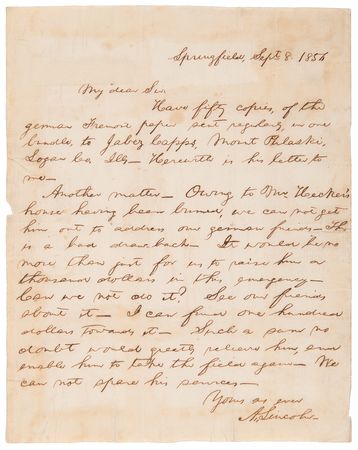 Springfield, Sept. 8. 1856
My dear Sir.
Have fifty copies, of the
german Fremont paper sent regularly, in one
bundle, to Jabez Capps, Mount Pulaski,
Logan Co. Ills— Herewith is his letter to
me—
Another matter— Owing to Mr. Hecker's
house having been burned, we can not get
him out to address our german friends— This
is a bad draw-back— It would be no
more than just for us to raise him a
thousand dollars in this emergency—
Can we not do it? See our friends
about it— I can find one hundred
dollars towards it— Such a sum no
doubt would greatly relieve him, and
enable him to take the field again— We
can not spare his services—
Yours as ever
A. Lincoln—